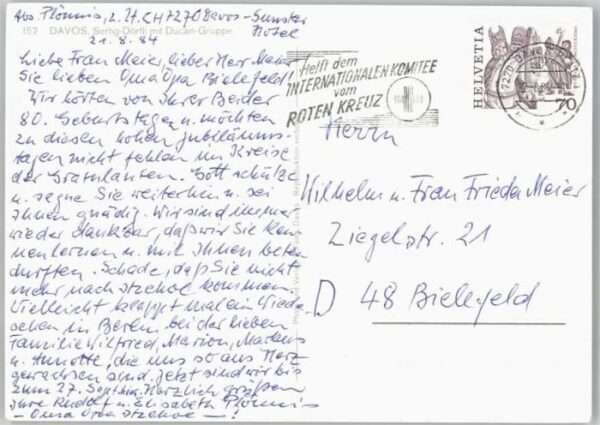 Abs. Plönnis, z. Zt. CH 7270 Davos-Sunstar
Hotel
157 DAVOS, Sertig-Dörfli mit Ducan-Gruppe
21. 8. 84
Liebe Frau Meier, lieber Herr Meier
Sie lieben Oma Opa Bielefeld!
Wir hörten von Ihrer Beider
80. Geburtstagen u. möchten
zu diesen hohen Jubiläums-
tagen nicht fehlen im Kreise
der Gratulanten. Gott schütze
u. segne Sie weiterhin u. sei
Ihnen gnädig. Wir sind immer
wieder dankbar, daß wir Sie ken
nenlernen u. mit Ihnen beten
durften. Schade, daß Sie nicht
mehr nach Itzehoe kommen.
Vielleicht klappt mal ein Wieder
sehen in Berlin bei der lieben
Familie Wilfried, Marion, Markus
u. Annette, die uns so ans Herz
gewachsen sind. Jetzt sind wir bis
zum 27. Sept. hier. Herzlich grüßen
Ihre Rudolf u. Elisabeth Plönnis
- Oma Opa Itzehoe - !
Helft dem
INTERNATIONALEN KOMITEE
vom
ROTEN KREUZ
HELVETIA
70
7270 DAVOS
Herrn
Wilhelm u. Frau Frieda Meier
Ziegelstr. 21
D 48 Bielefeld